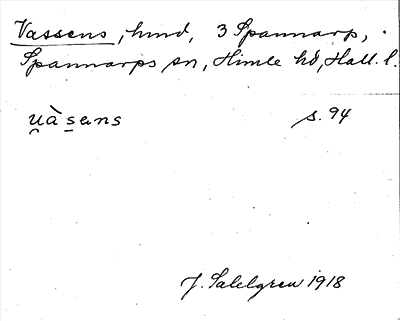 Vassens, hmd, 3 Spannarp,
Spannarps sn, Himle hd, Hall. l.
u̯àsens s. 94
J. Sahlgren 1918